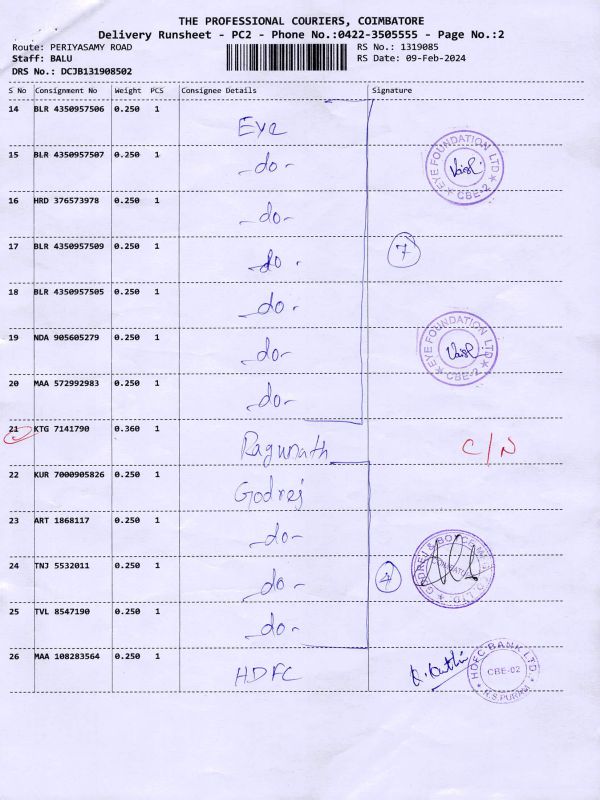 THE PROFESSIONAL COURIERS, COIMBATORE
Delivery Runsheet - PC2 - Phone No.:0422-3505555 - Page No.:2
Route: PERIYASAMY ROAD RS No.: 1319085
Staff: BALU RS Date: 09-Feb-2024
DRS No.: DCJB131908502
S No Consignment No Weight PCS Consignee Details Signature
14 BLR 4350957506 0.250 1 Eye
15 BLR 4350957507 0.250 1 -do-
EYE FOUNDATION LTD CBE-2
16 HRD 376573978 0.250 1 -do-
17 BLR 4350957509 0.250 1 -do- 7
18 BLR 4350957505 0.250 1 -do-
19 NDA 905605279 0.250 1 -do-
EYE FOUNDATION LTD CBE-2
20 MAA 572992983 0.250 1 -do-
21 KTG 7141790 0.360 1 Ragunath C/N
22 KUR 7000905826 0.250 1 Godrej
23 ART 1868117 0.250 1 -do-
24 TNJ 5532011 0.250 1 -do- 4
GODREJ & BOYCE
25 TVL 8547190 0.250 1 -do-
26 MAA 108283564 0.250 1 HDFC
HDFC BANK LTD CBE-02 R.S.PURAM